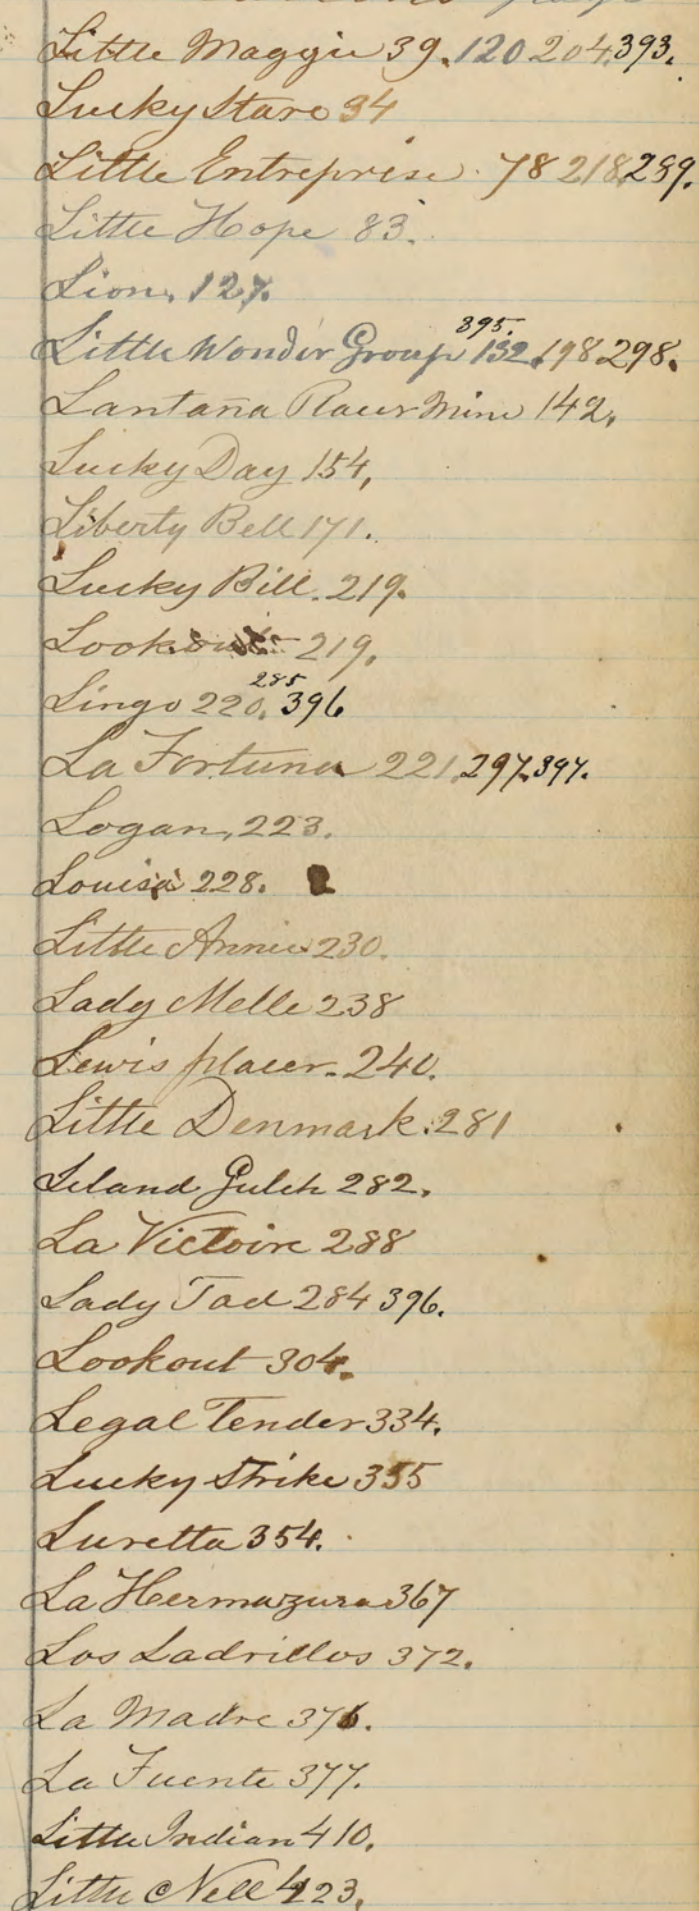 Little Maggie 39. 120 204. 393.
Lucky Stare 34
Little Entreprise. 78 218. 289.
Little Hope 83.
Lion. 127.
395.
Little Wonder Group 132. 198 298.
Lantaña Placer Mine 142.
Lucky Day 154,
Liberty Bell 171.
Lucky Bill. 219.
Lookout 219.
285
Lingo 220. 396
La Fortuna 221. 297. 397.
Logan, 223.
Louisa 228.
Little Annie 230.
Lady Melle 238
Lewis placer. 240.
Little Denmark. 281
Leland Gulch 282.
La Victoire 288
Lady Tad 284 396.
Lookout 304.
Legal Tender 334.
Lucky Strike 355
Luretta 354.
La Hermazura 367
Los Ladrillos 372.
La Madre 376.
La Fuente 377.
Little Indian 410.
Little Nell 423.